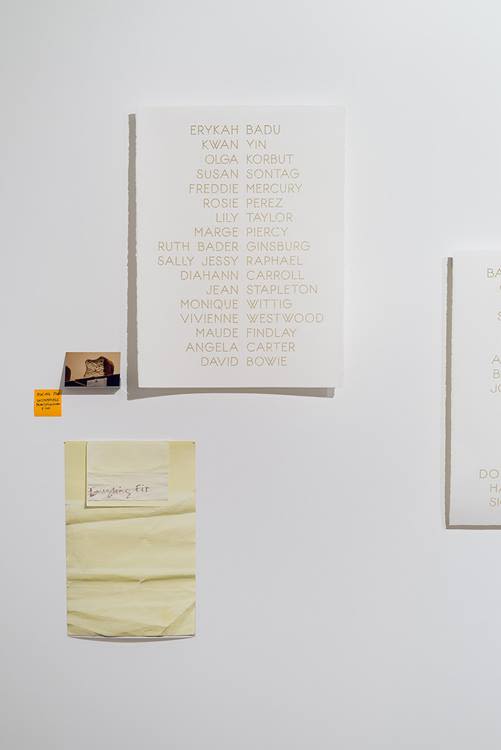 ERYKAH BADU
KWAN YIN
OLGA KORBUT
SUSAN SONTAG
FREDDIE MERCURY
ROSIE PEREZ
LILY TAYLOR
MARGE PIERCY
RUTH BADER GINSBURG
SALLY JESSY RAPHAEL
DIAHANN CARROLL
JEAN STAPLETON
MONIQUE WITTIG
VIVIENNE WESTWOOD
MAUDE FINDLAY
ANGELA CARTER
DAVID BOWIE
Laughing Fit
BA
S
A
B
JO
DO
HA
SI